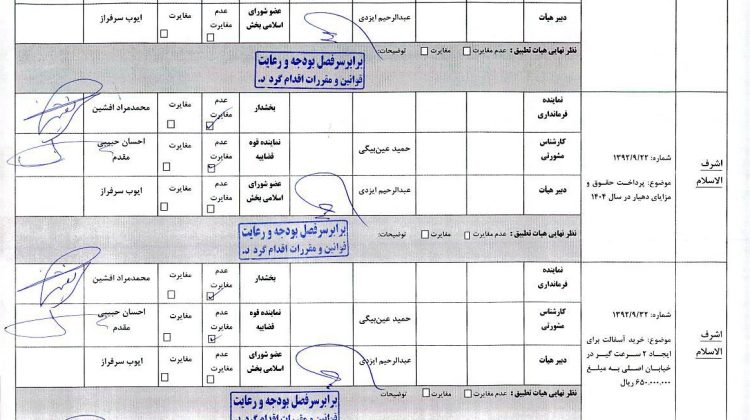 دبیر هیات
عبدالرحیم ایزدی
عضو شورای اسلامی بخش
عدم مغایرت
مغایرت
ایوب سرفراز
نظر نهایی هیات تطبیق : عدم مغایرت مغایرت توضیحات:
برابر سرفصل بودجه و رعایت
قوانین و مقررات اقدام گرد د.
اشرف الاسلام
شماره: ۱۳۹۲/۹/۲۲
موضوع: پرداخت حقوق و
مزایای دهیار در سال ۱۴۰۴
نماینده فرمانداری
بخشدار
عدم مغایرت
مغایرت
محمدمراد افشین
کارشناس مشورتی
حمید عین‌بیگی
نماینده قوه قضاییه
عدم مغایرت
مغایرت
احسان حبیبی مقدم
دبیر هیات
عبدالرحیم ایزدی
عضو شورای اسلامی بخش
عدم مغایرت
مغایرت
ایوب سرفراز
نظر نهایی هیات تطبیق : عدم مغایرت مغایرت توضیحات:
برابر سرفصل بودجه و رعایت
قوانین و مقررات اقدام گرد د.
اشرف الاسلام
شماره: ۱۳۹۲/۹/۳۲
موضوع: خرید آسفالت برای
ایجاد ۲ سرعت گیر در
خیابان اصلی به مبلغ
۶۵۰.۰۰۰.۰۰۰ ریال
نماینده فرمانداری
بخشدار
عدم مغایرت
مغایرت
محمدمراد افشین
کارشناس مشورتی
حمید عین‌بیگی
نماینده قوه قضاییه
عدم مغایرت
مغایرت
احسان حبیبی مقدم
دبیر هیات
عبدالرحیم ایزدی
عضو شورای اسلامی بخش
عدم مغایرت
مغایرت
ایوب سرفراز
نظر نهایی هیات تطبیق : عدم مغایرت مغایرت توضیحات:
برابر سرفصل بودجه و رعایت